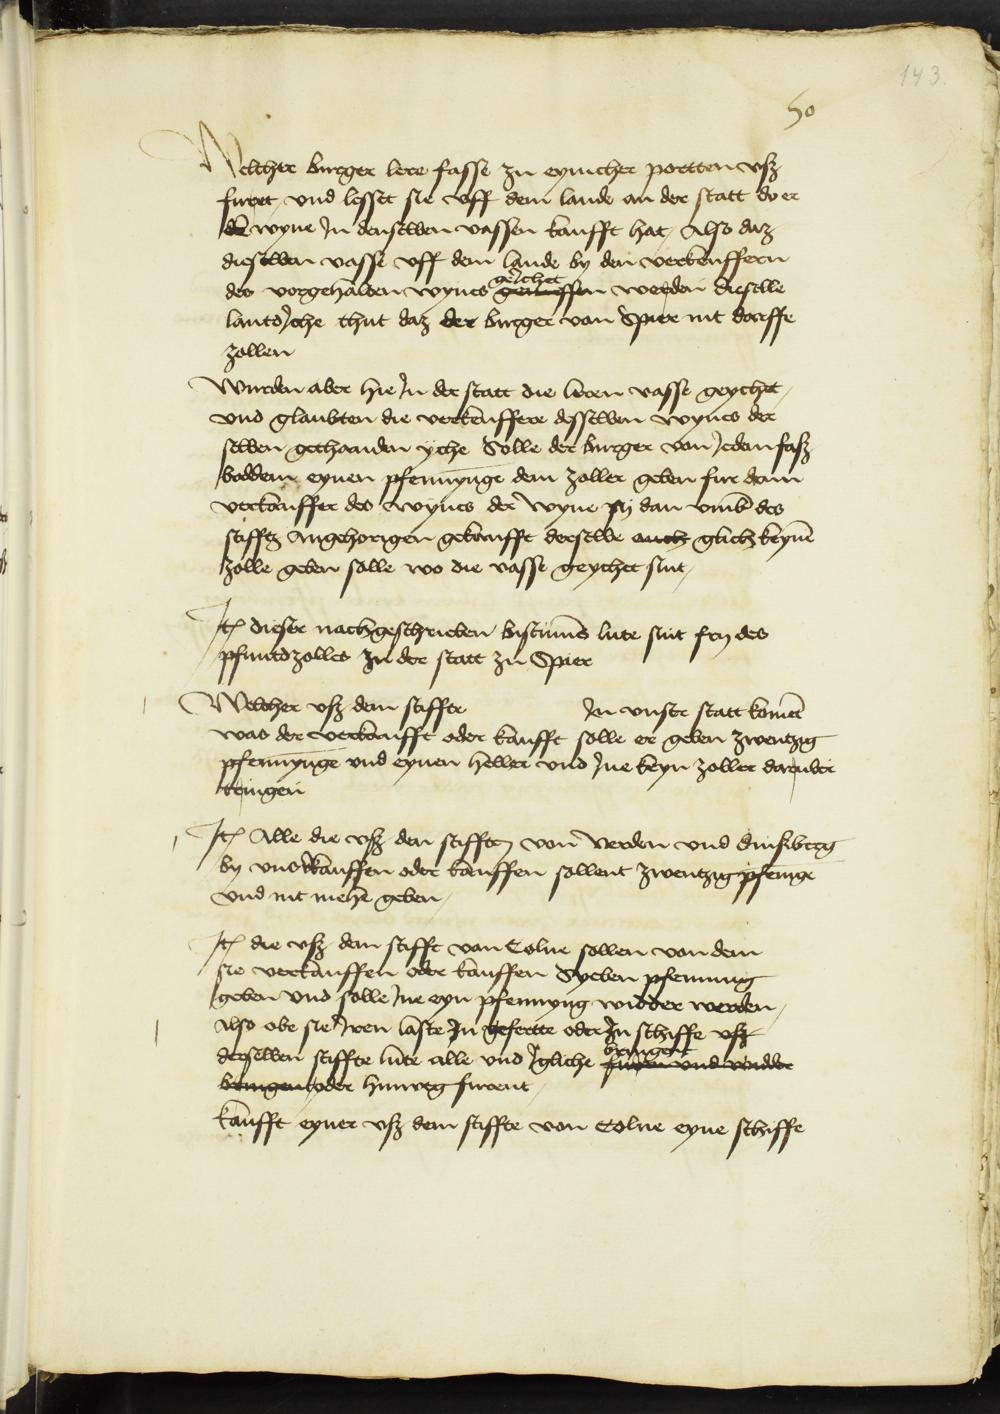 143.
50
Welcher burger lere fasse zu eynicher portten vsz
furet, vnd lesset sie vff dem lande an der statt do er
den wyne In denselben vassen kaufft hat, Also daz
dieselben vasse vff dem lande by den verkeuffern
des vorgehalden wynes geychet werden dieselbe
lantdyche thut daz der burger von Spier nit dorffe
zollen
Wurden aber hie In der statt die leren vasse geychet,
vnd glaubten die verkeuffere desselben wynes der
selben gethaanden yche Solle der burger von Jedem fasz
boddem eynen pfennynge dem zoller geben fur dem
verkeuffer des wynes der wyne sy dan vmb des
stiffts Angehorigen gekaufft derselbe auch glich keyne
zolle geben solle wo die vasse geychet sint,
Jt dieser nachgeschrieben bistums lute sint fry des
pfuntdzolles zu der statt zu Spier
Welcher vsz dem stiffte In vnser statt komet
was der verkaufft oder kaufft solle er geben zwentzig
pfennynge vnd eynen heller vnd Jne keyn zoller daruber
tringen
Jt Alle die vsz den stifften von Verden vnd
by vns verkauffen oder kauffen sollent zwentzig pfenige
vnd nit mehe geben,
Jt die vsz dem stifft von Colne sollen von dem
sie verkauffen oder kauffen Syeben pfenning
geben vnd solle Jne eyn pfennyng widder werden,
Also obe sie Jren laste In gefertte oder In schiffe vsz
derselben stiffte lute alle vnd Igliche furen vnd widder bringent
bringen oder hinweg furent,
kaufft eyner vsz dem stiffte von Colne eyne schiffe